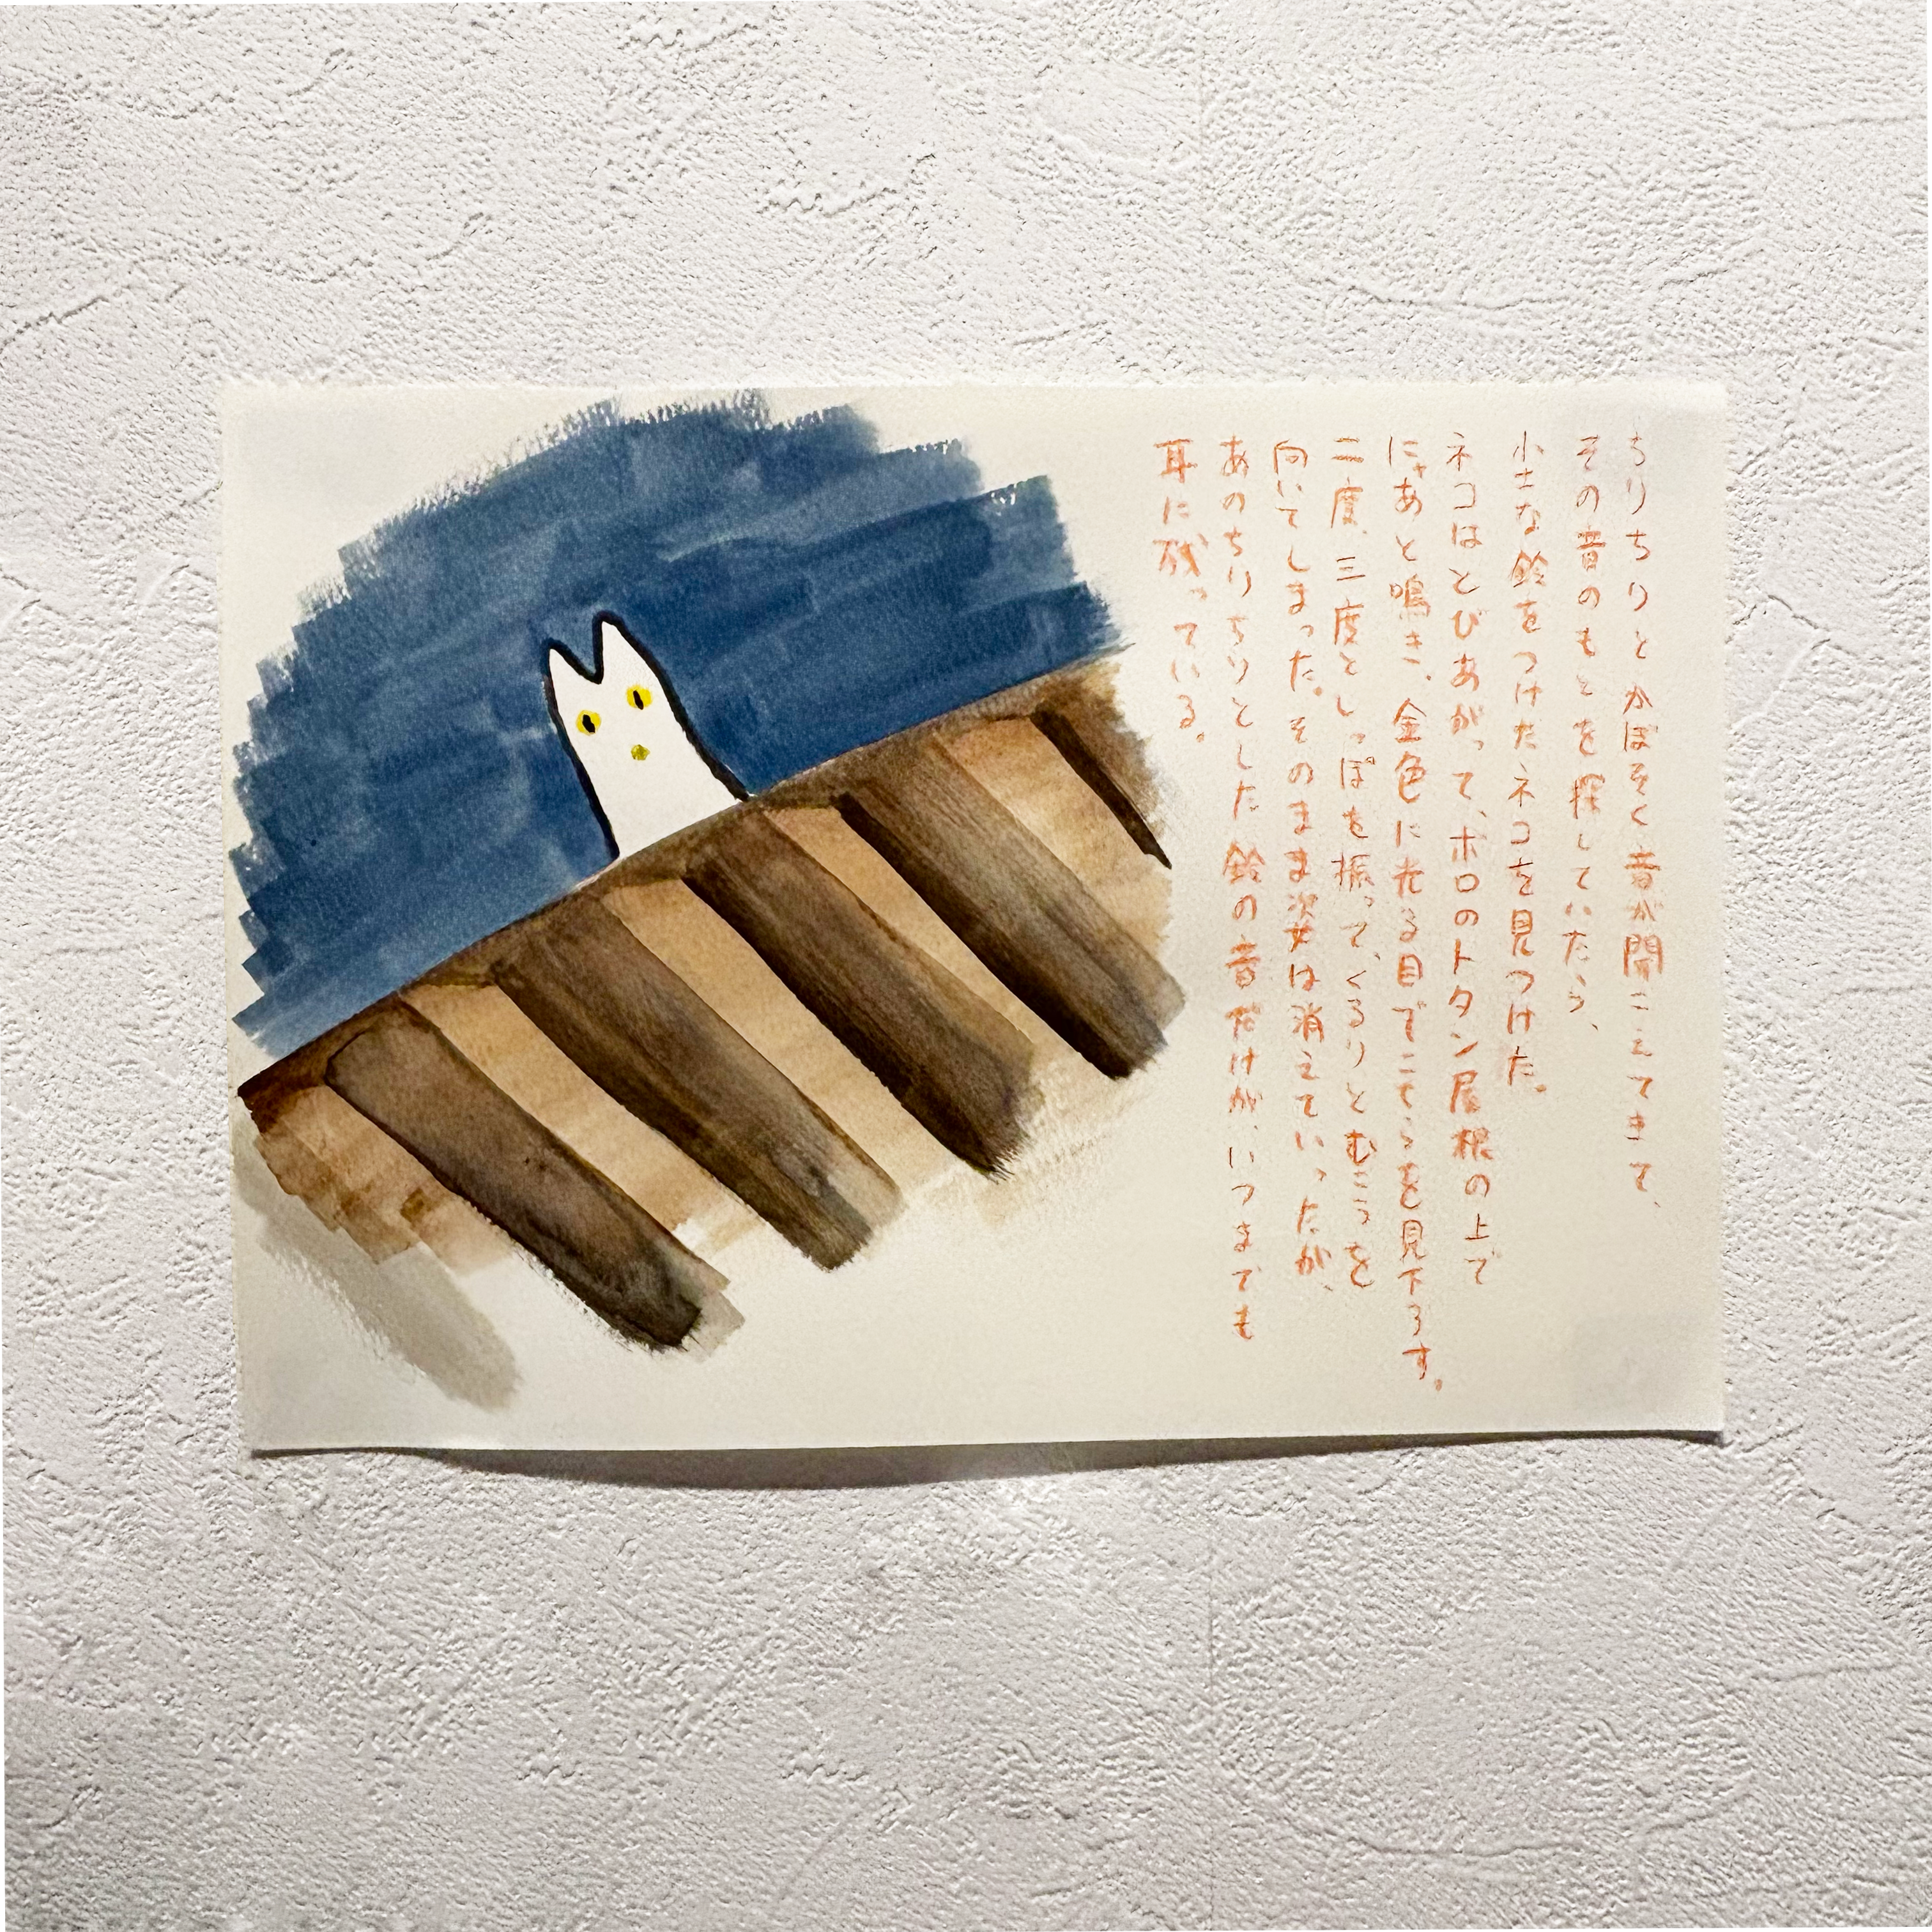 ちりちりとかぼそく音が聞こえてきて、
その音のもとを探していたら、
小さな鈴をつけたネコを見つけた。
ネコはとびあがって、ボロのトタン屋根の上で
にゃあと鳴き、金色に光る目でこちらを見下ろす。
二度、三度としっぽを振って、くるりとむこうを
向いてしまった。そのまま姿は消えていったが、
あのちりちりとした鈴の音だけが、いつまでも
耳に残っている。